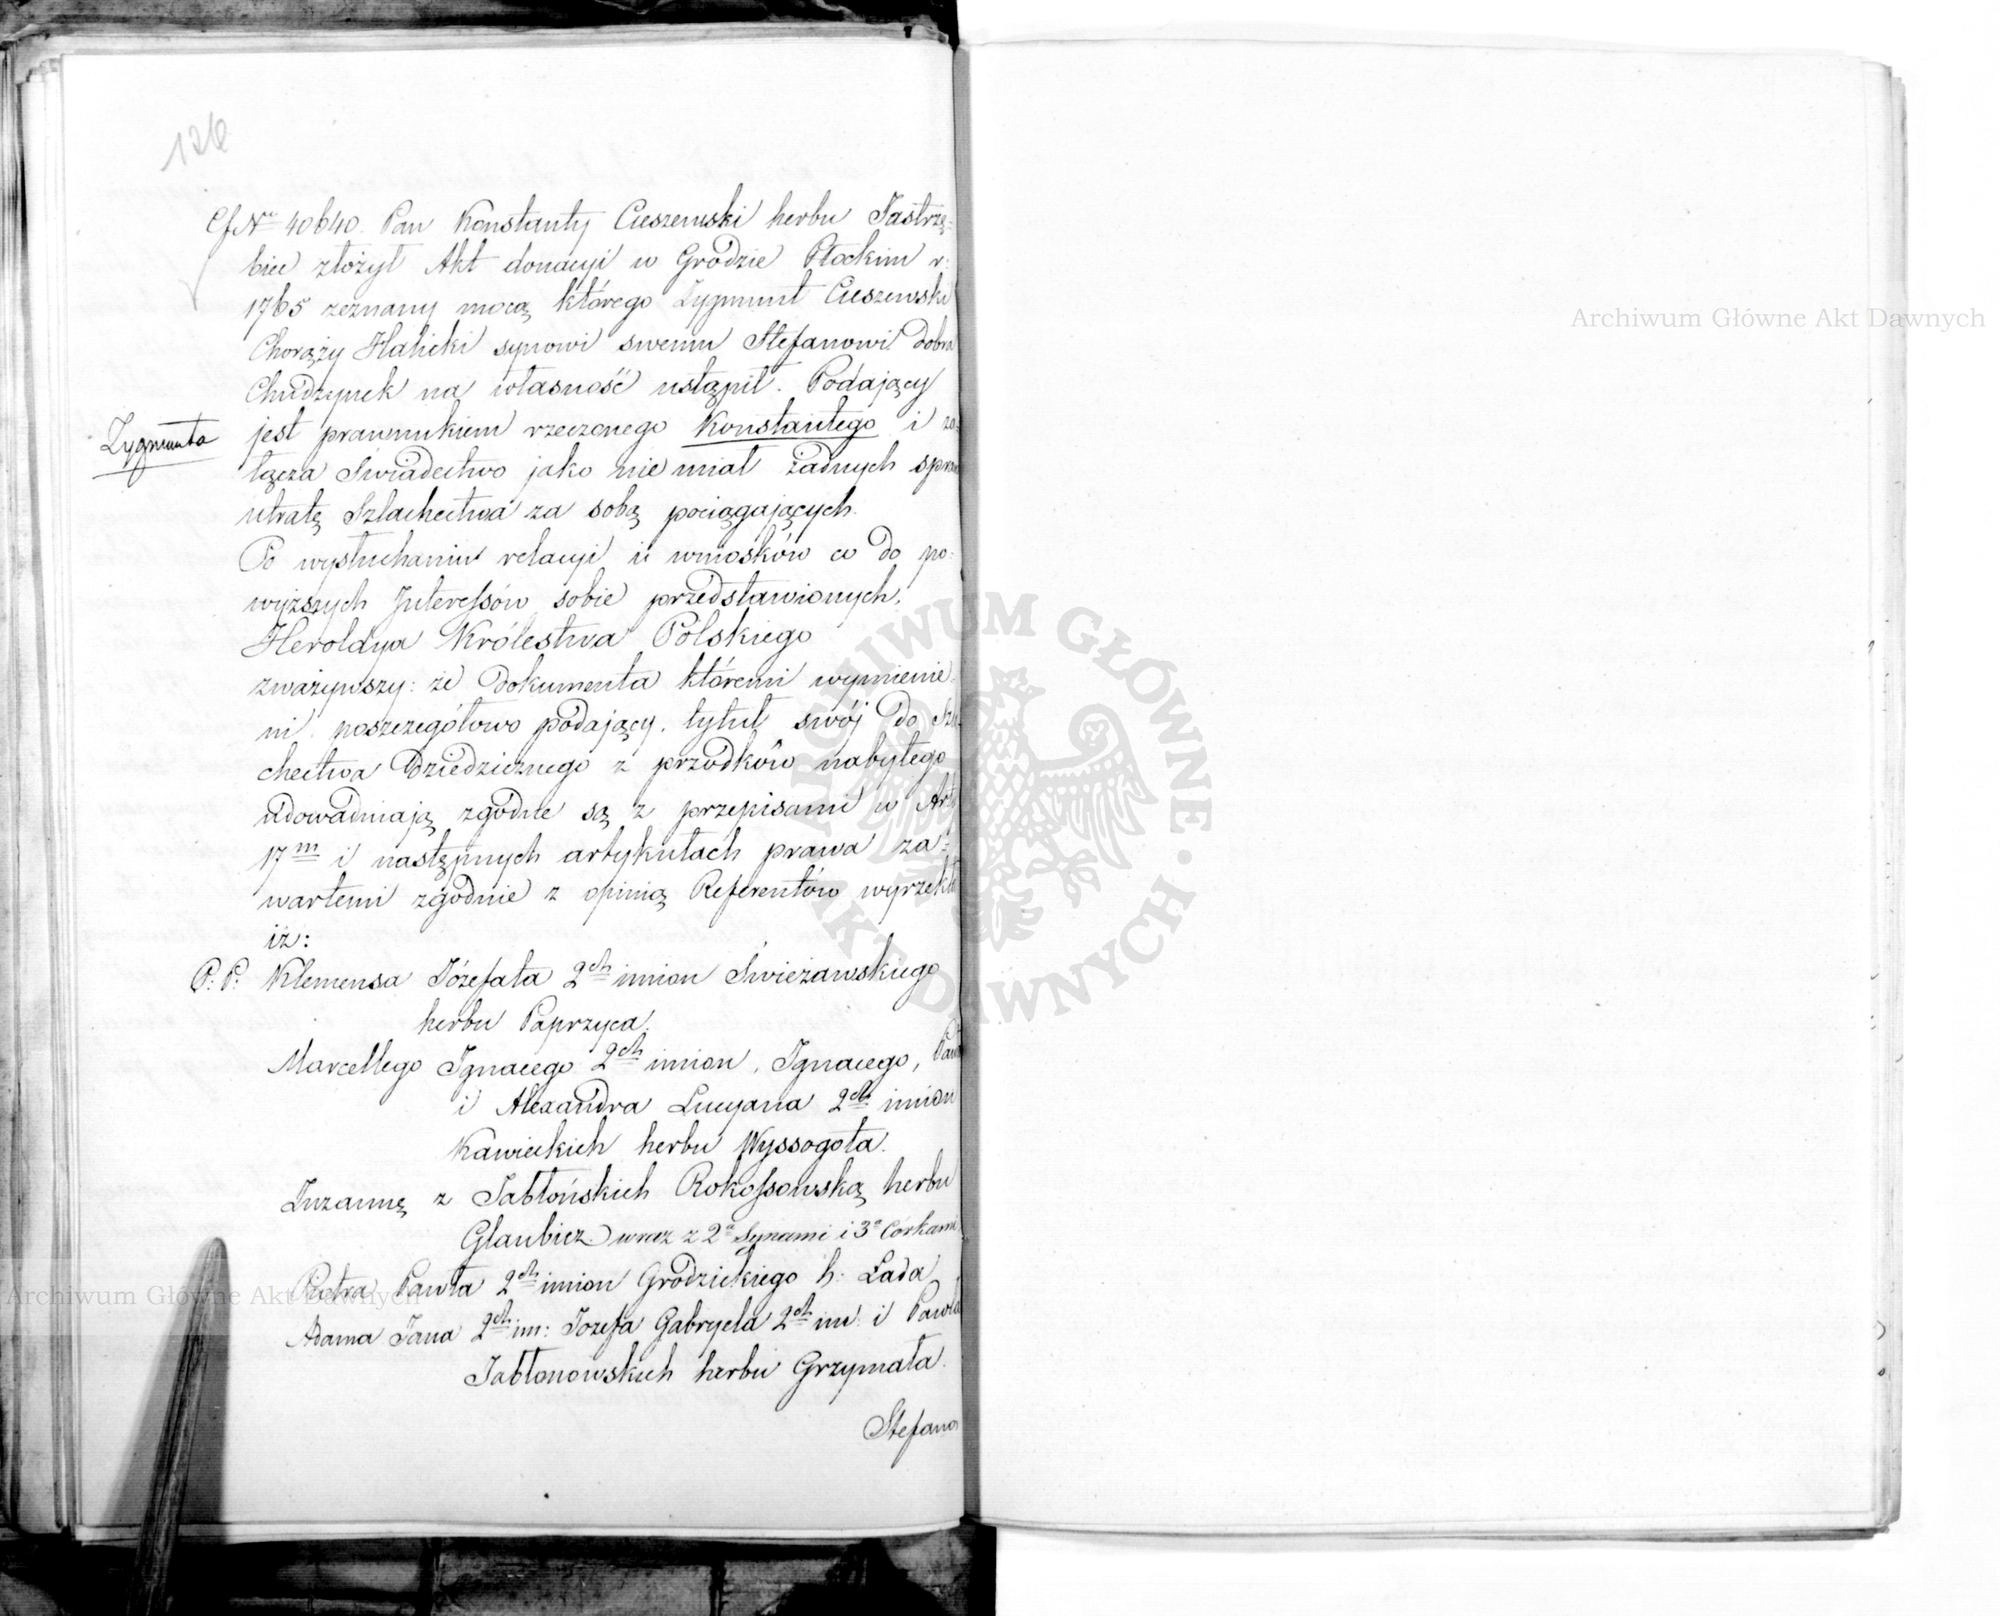 126
Cf Nr 40640. Pan Konstanty Cieszewski herbu Jastrzę-
biec złożył Akt donacyi w Grodzie Płockim r:
1765 zeznany mocą którego Zygmunt Cieszewski
Chorąży Halicki synowi swemu Stefanowi dobra
Chudzynek na własność ustąpił. Podający
Zygmunta
jest prawnukiem rzeczonego Konstantego i za-
łącza Świadectwo jako nie miał żadnych spraw
utratę Szlachectwa za sobą pociągających.
Po wysłuchaniu relacyi i wniosków co do po-
wyższych Interessów sobie przedstawionych.
Heroldya Królestwa Polskiego
zważywszy: że dokumenta któremi wymienie-
ni poszczegółowo podający, tytuł swój do Szla-
chectwa Dziedzicznego z przodków nabytego
udowadniają zgodne są z przepisami w Art
17m i następnych artykułach prawa za-
wartemi zgodnie z opinią Referentów wyrzekła
iż:
P: P: Klemensa Józefata 2ch imion Świeżawskiego
herbu Paprzyca.
Marcellego Ignacego 2ch imion, Ignacego,
i Alexandra Lucyana 2ch imion
Kawieckich herbu Wyssogota.
Zuzannę z Jabłońskich Rokossowską herbu
Glaubicz wraz z 2a Synami i 3a Córkami
Piotra Pawła 2ch imion Grodzickiego h: Łada
Adama Jana 2ch im: Józefa Gabryela 2ch im: i Pawła
Jabłonowskich herbu Grzymała.
Stefana
Archiwum Główne Akt Dawnych
Archiwum Główne Akt Dawnych
ARCHIWUM GŁÓWNE · AKT DAWNYCH ·